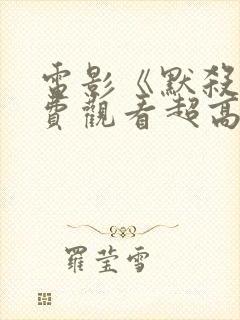 電影《默殺
費觀看超高
羅瑩雪